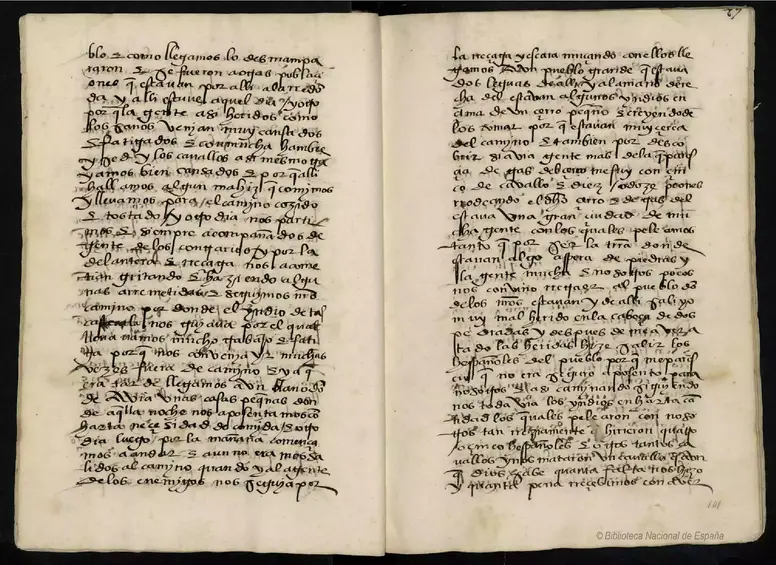 blo E como llegamos lo desmampa
raron E se fueron a otras poblaci
ones q estavan por alli a la rredo
da y alli estuve aquel dia y otro
por q la gente asi heridos como
los sanos venian muy cansados
E fatigados E con mucha hambre
y sed y los cavallos asi mesmo tra
yamos bien cansados E por q alli
hallamos algun mahiz q comimos
y llevamos para el camino cozido
E tostado y otro dia nos parti
mos E siempre acompañados de
gente de los contrarios y por la
delantera E rreçaga nos acome
tian gritando E haziendo algu
nas arremetidas E seguymos nro
camino por donde el yndio de tas
caltecal nos guyava por el qual
llevavamos mucho trabajo E fati
ga por q nos convenia yr muchas
vezes fuera de camino E ya q
era tarde llegamos a un llano do
de avia unas casas pequeñas don
de aquella noche nos aposentamos co
harta neçesidad de comida E otro
dia luego por la mañana comença
mos a andar E aun no eramos sa
lidos al camino quando ya la gente
de los enemigos nos seguya por
27
la rreçaga y escaramuçando con ellos lle
gamos a un pueblo grande q estava
dos leguas de alli y a la mano dere
cha del estavan algunos yndios en
çima de un çerro pequeño E creyendo de
los tomar por q estavan muy çerca
del camino E tambien por desco
brir si avia gente mas de la q pareçi
a de tras del çerro me fuy con çin
co de cavallo E diez o doze peones
rrodeando el dho çerro E detras del
estava una gran ciudad de mu
cha gente con los quales peleamos
tanto q por ser la trra donde
estavan algo aspera de piedras y
la gente mucha E nosotros pocos
nos convino rretraer al pueblo do
de los nros estavan y de alli sali yo
muy mal herido en la cabeça de dos
pedradas y despues de me aver a
tado las heridas hize salir los
hespañoles del pueblo por q me pares
çio q no era seguro aposento para
nosotros E asi caminando siguiendo
nos todavia los yndios en harta ca
tidad los quales pelearon con noso
tros tan rreziamente q hirieron quatro
o çinco hespañoles E otros tantos ca
vallos y nos mataron un cavallo q aun
q dios sabe quanta falta nos hizo
y quanta pena rreçebimos con aver
101
© Biblioteca Nacional de España